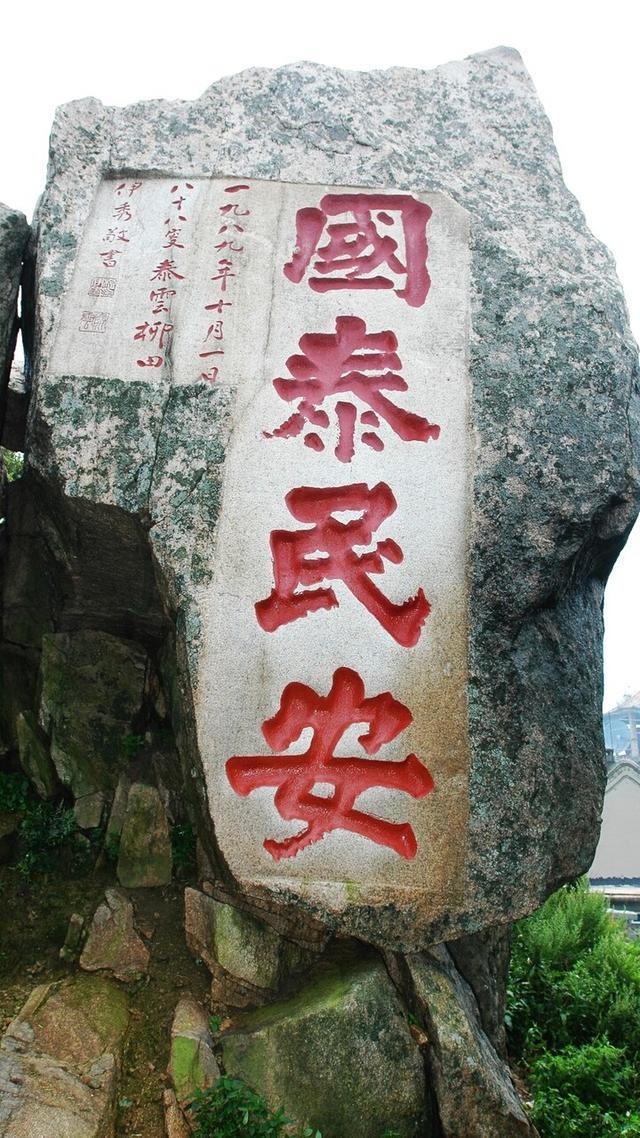 國泰民安
一九八九年十月一日
八十八叟 泰雲柳田
伊秀敬書